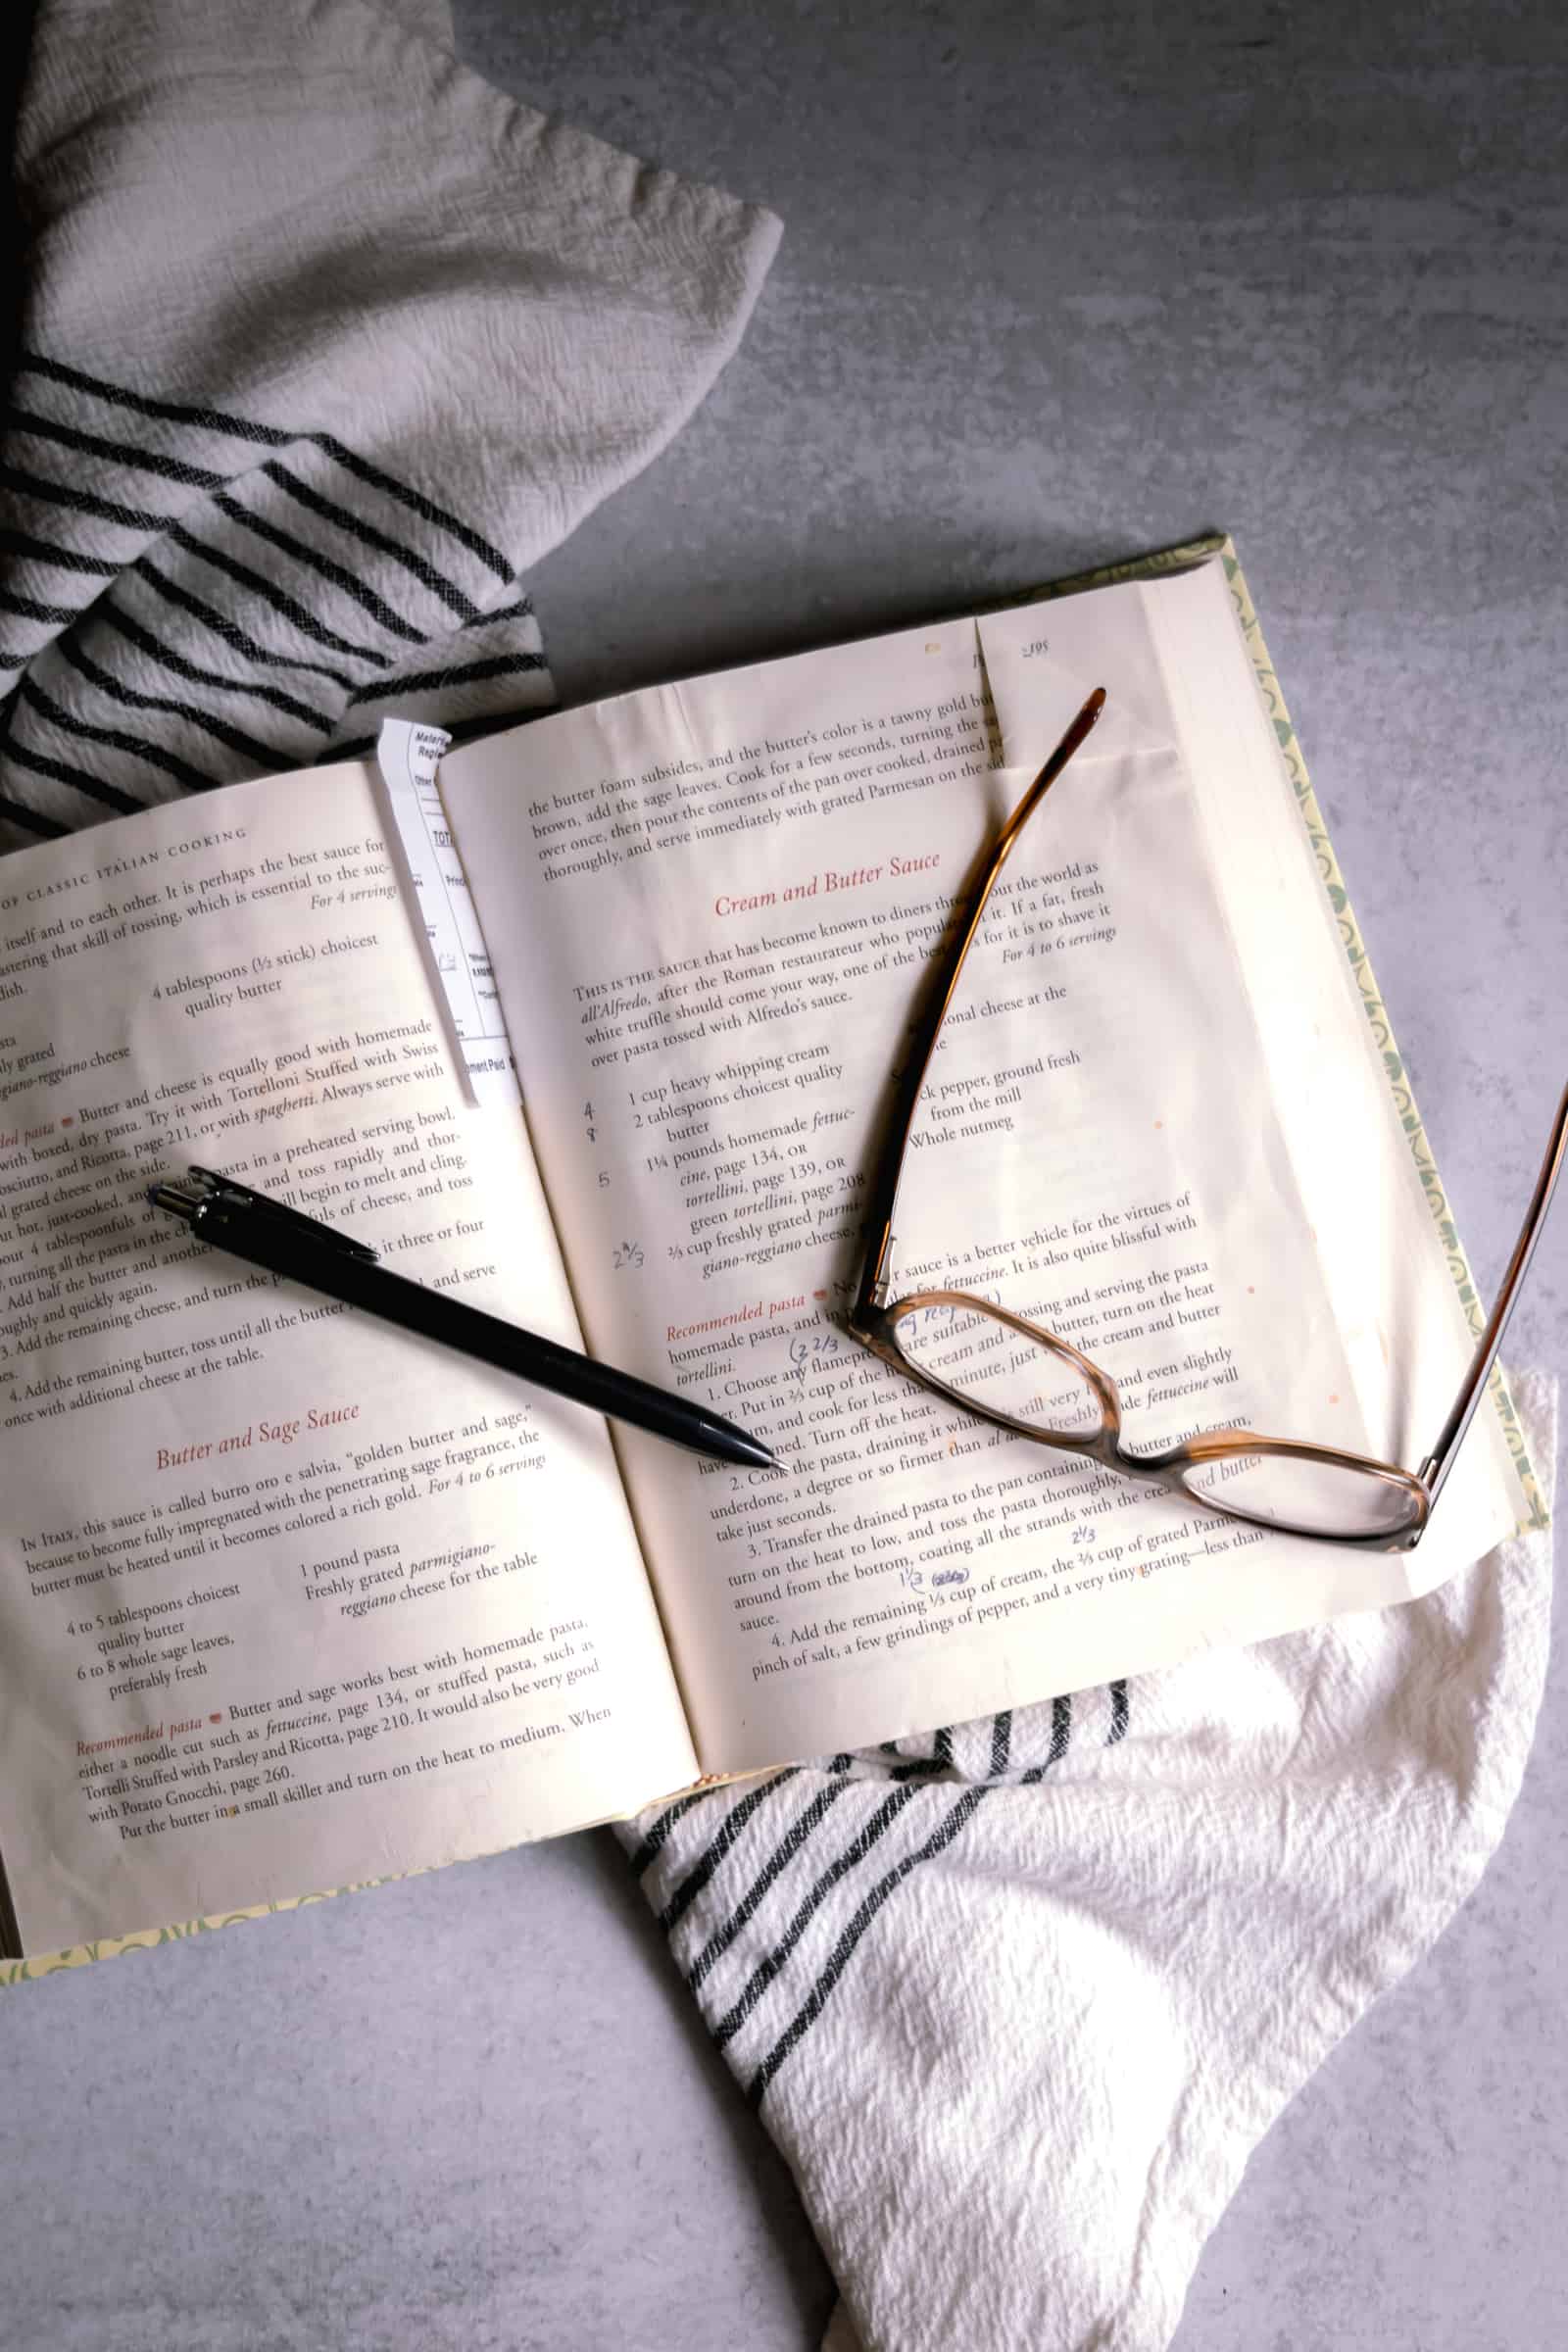 OF CLASSIC ITALIAN COOKING
itself and to each other. It is perhaps the best sauce for
astering that skill of tossing, which is essential to the suc-
dish.
For 4 servings
4 tablespoons (½ stick) choicest
quality butter
ly grated
giano-reggiano cheese
pasta Butter and cheese is equally good with homemade
with boxed, dry pasta. Try it with Tortelloni Stuffed with Swiss
osciutto, and Ricotta, page 211, or with spaghetti. Always serve with
l grated cheese on the side.
hot, just-cooked, and pasta in a preheated serving bowl.
out 4 tablespoonfuls of and toss rapidly and thor-
turning all the pasta in the ill begin to melt and cling.
Add half the butter and another fuls of cheese, and toss
oughly and quickly again.
3. Add the remaining cheese, and turn the it three or four
es.
4. Add the remaining butter, toss until all the butter and serve
once with additional cheese at the table.
Butter and Sage Sauce
IN ITALY, this sauce is called burro oro e salvia, “golden butter and sage,”
because to become fully impregnated with the penetrating sage fragrance, the
butter must be heated until it becomes colored a rich gold. For 4 to 6 servings
4 to 5 tablespoons choicest
quality butter
6 to 8 whole sage leaves,
preferably fresh
1 pound pasta
Freshly grated parmigiano-
reggiano cheese for the table
Recommended pasta Butter and sage works best with homemade pasta,
either a noodle cut such as fettuccine, page 134, or stuffed pasta, such as
Tortelli Stuffed with Parsley and Ricotta, page 210. It would also be very good
with Potato Gnocchi, page 260.
Put the butter in a small skillet and turn on the heat to medium. When
TOT
ment Paid
195
the butter foam subsides, and the butter's color is a tawny gold but
brown, add the sage leaves. Cook for a few seconds, turning the
over once, then pour the contents of the pan over cooked, drained
thoroughly, and serve immediately with grated Parmesan on the sid
Cream and Butter Sauce
THIS IS THE SAUCE that has become known to diners thro out the world as
all'Alfredo, after the Roman restaurateur who popula it. If a fat, fresh
white truffle should come your way, one of the be s for it is to shave it
over pasta tossed with Alfredo's sauce.
For 4 to 6 servings
4 1 cup heavy whipping cream
8 2 tablespoons choicest quality
butter
5 1¼ pounds homemade fettuc-
cine, page 134, OR
tortellini, page 139, OR
green tortellini, page 208
2⅔ ⅔ cup freshly grated parmi-
giano-reggiano cheese,
onal cheese at the
ck pepper, ground fresh
from the mill
Whole nutmeg
Recommended pasta No r sauce is a better vehicle for the virtues of
homemade pasta, and in for fettuccine. It is also quite blissful with
tortellini.
(2 2/3
1. Choose any flamepro are suitable ossing and serving the pasta
Put in ⅔ cup of the cream and butter, turn on the heat
um, and cook for less tha minute, just the cream and butter
have ned. Turn off the heat.
2. Cook the pasta, draining it while still very and even slightly
underdone, a degree or so firmer than al Freshly de fettuccine will
take just seconds.
3. Transfer the drained pasta to the pan containing butter and cream,
turn on the heat to low, and toss the pasta thoroughly,
around from the bottom, coating all the strands with the crea nd butter
sauce.
1⅓
2⅓
4. Add the remaining ⅓ cup of cream, the ⅔ cup of grated Parme
pinch of salt, a few grindings of pepper, and a very tiny grating—less than